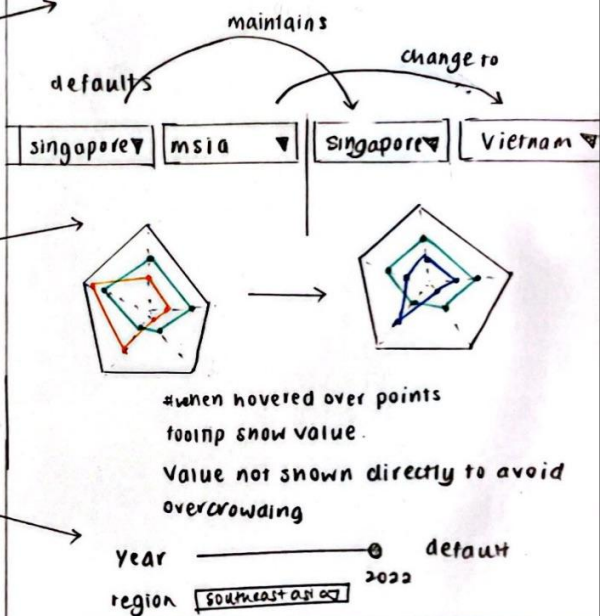 maintains
change to
defaults
singapore msia singapore Vietnam
#when hovered over points
tooltip show value.
Value not shown directly to avoid
overcrowding
Year default
2022
region southeast asia